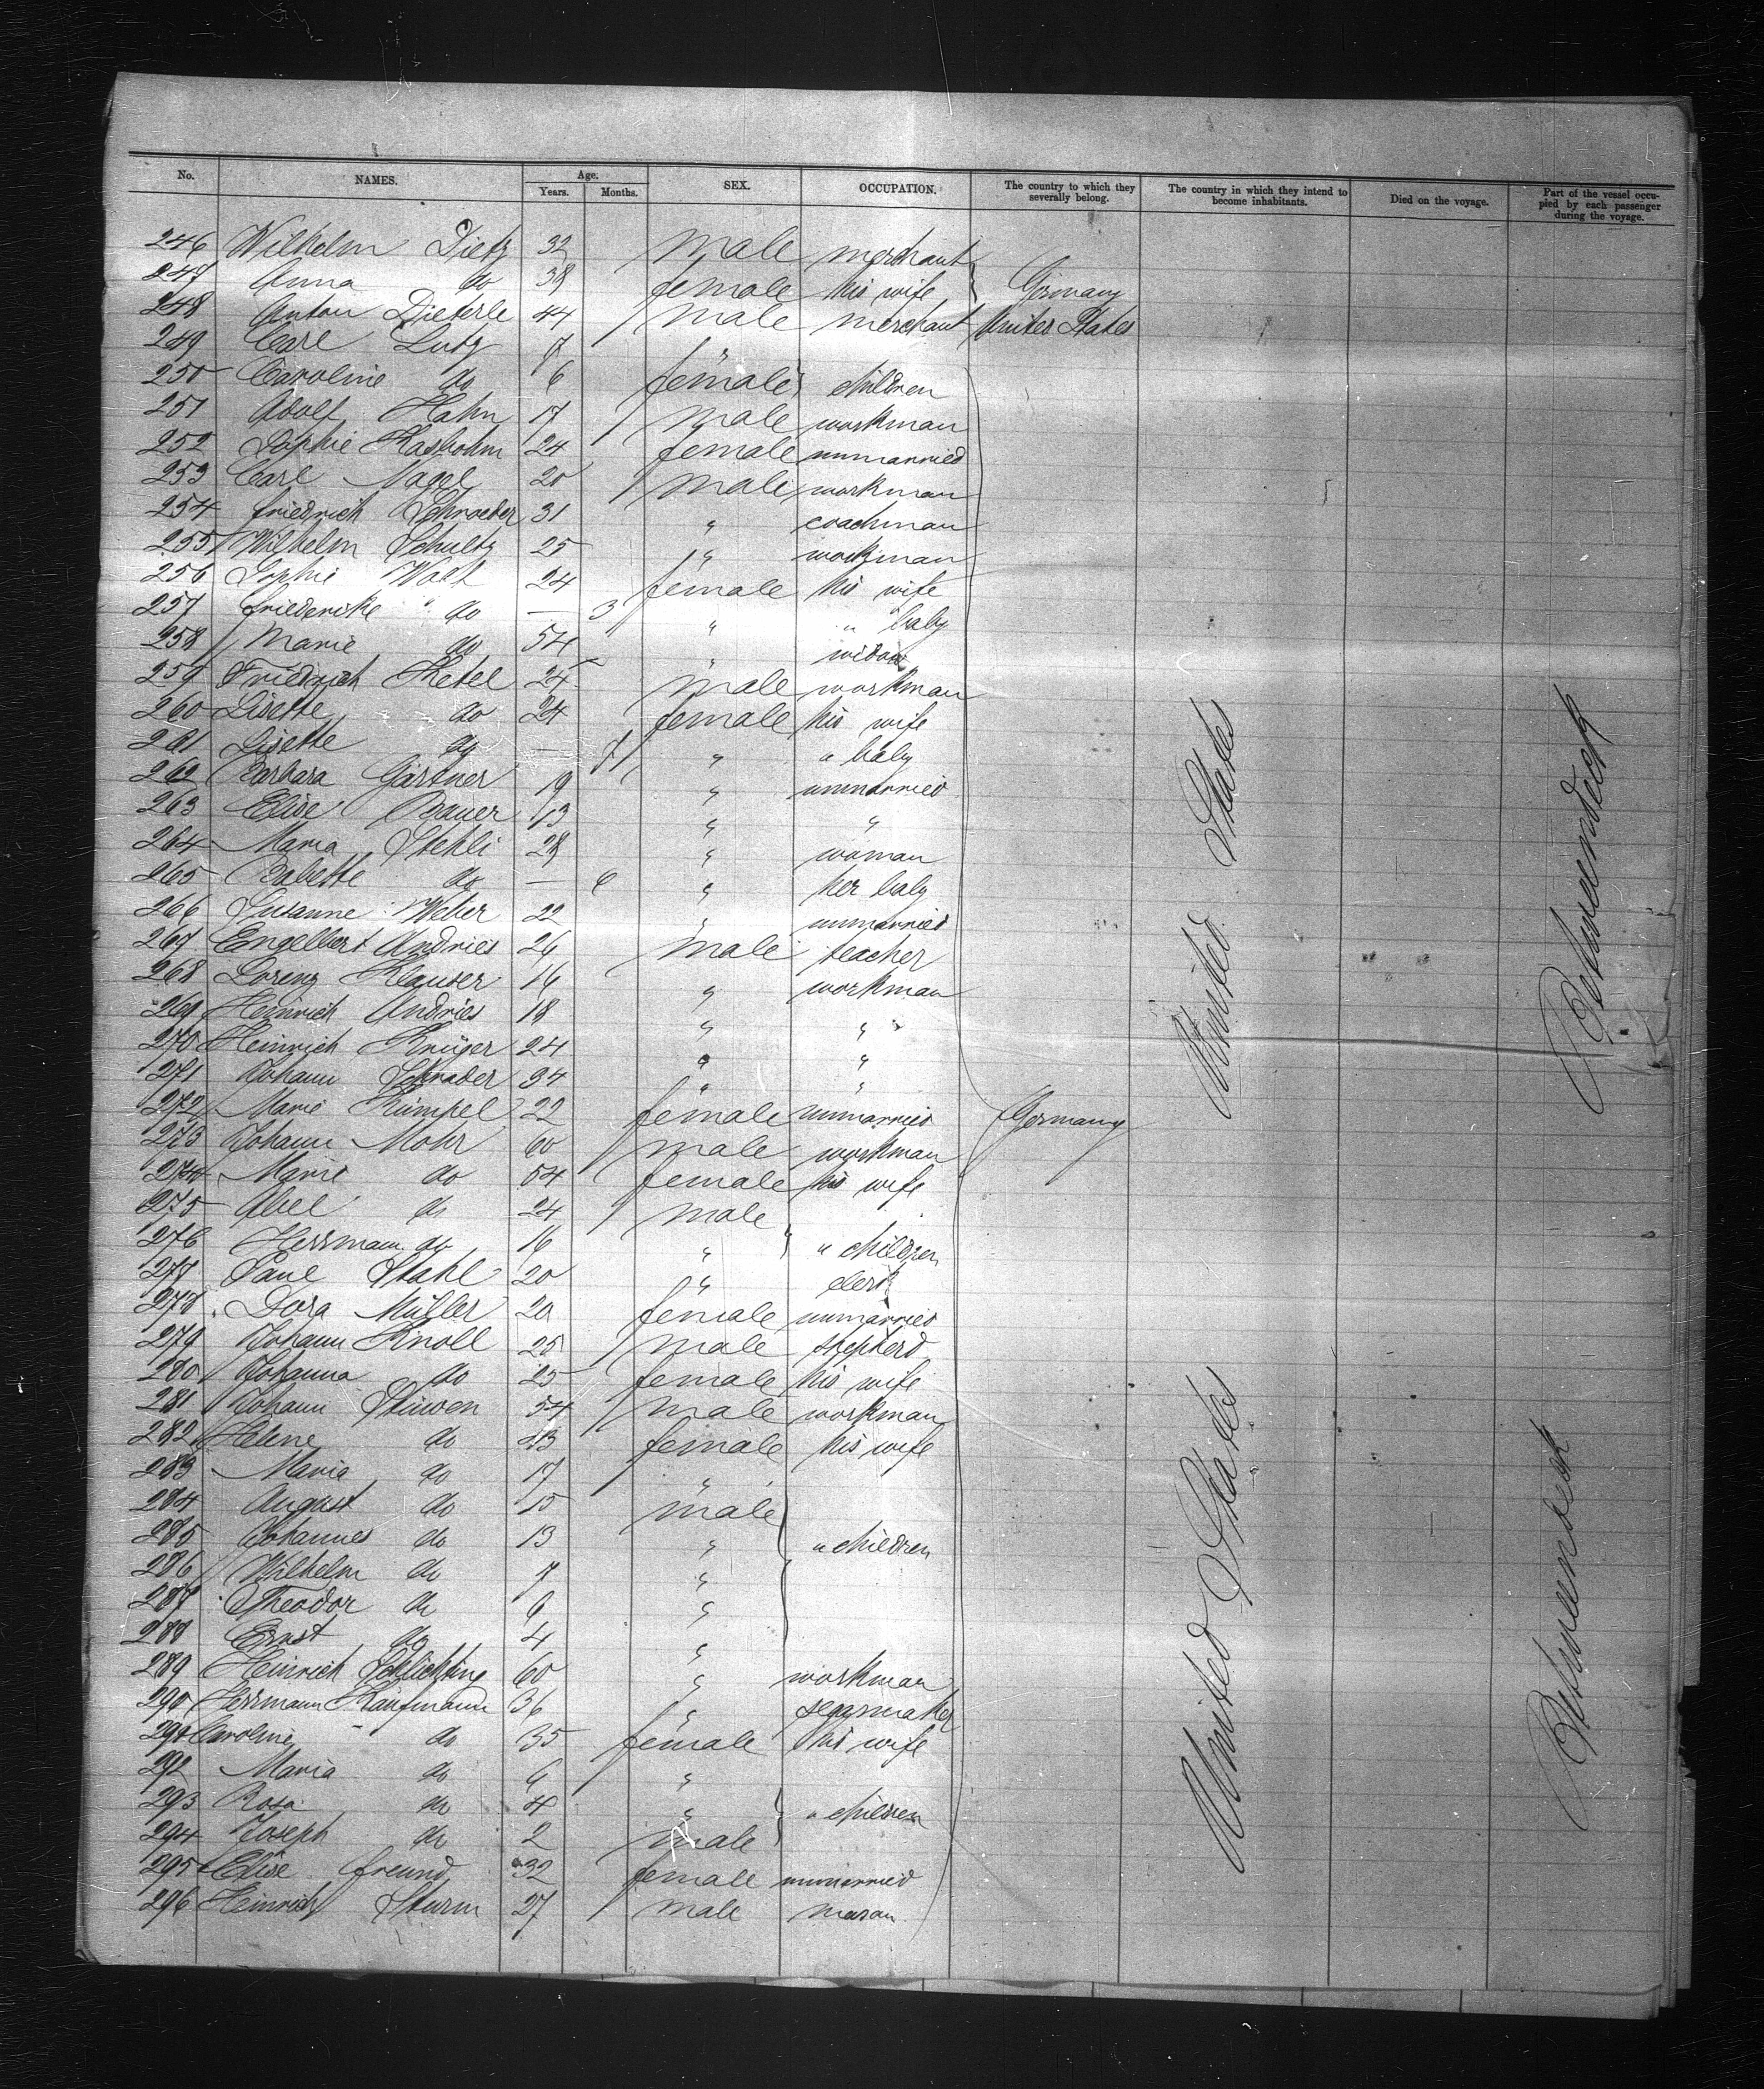 No. NAMES. Age. Years. Months. SEX. OCCUPATION. The country to which they severally belong. The country in which they intend to become inhabitants. Died on the voyage. Part of the vessel occupied by each passenger during the voyage.
246 Wilhelm Dietz 32 male merchant
247 Anna do 38 female his wife Germany
248 Anton Dieterle 44 male merchant United States
249 Carl Lutz 7 "
250 Caroline do 6 female children
251 Adolf Hahn 17 male workman
252 Sophie Kasbohm 24 female unmarried
253 Carl Nagel 20 male workman
254 Friedrich Schroeder 31 " coachman
255 Wilhelm Schultz 25 " workman
256 Sophie 24 female his wife
257 Friederike do — 3 " " baby
258 Marie do 54 " widow
259 Friedrich Ketel 24 male workman
260 Lisette do 24 female his wife
261 Lisette do — 11 " " baby
262 Barbara Gärtner 19 " unmarried
263 Elise Bauer 13 " "
264 Maria Stehli 28 " woman
265 Babette do — 6 " her baby
266 Susanne Weber 22 " unmarried
267 Engelbert Andries 26 male teacher
268 Lorenz Klauser 16 " workman
269 Heinrich Andries 18 " "
270 Heinrich Krüger 24 " "
271 Johann Schrader 34 " "
272 Marie Rümpel 22 female unmarried Germany
273 Johann Mohr 60 male workman
274 Marie do 54 female his wife
275 Abel do 24 male
276 Herrmann do 16 " " children
277 Paul Stahl 20 " clerk
278 Dora Müller 20 female unmarried
279 Johann Knoll 25 male shepherd
280 Johanna do 25 female his wife
281 Johann Stüwen 54 male workman
282 Helene do 43 female his wife
283 Maria do 17 "
284 August do 15 male
285 Johannes do 13 " " children
286 Wilhelm do 7 "
287 Theodor do 6 "
288 Ernst do 4 "
289 Heinrich Schlichting 60 " workman
290 Herrmann Kaufmann 36 " segarmaker
291 Caroline do 35 female his wife
292 Maria do 6 "
293 Rosa do 4 " " children
294 Joseph do 2 male
295 Elise Freund 32 female unmarried
296 Heinrich Sturm 27 male mason
United States
United States
Betweendeck
Betweendeck